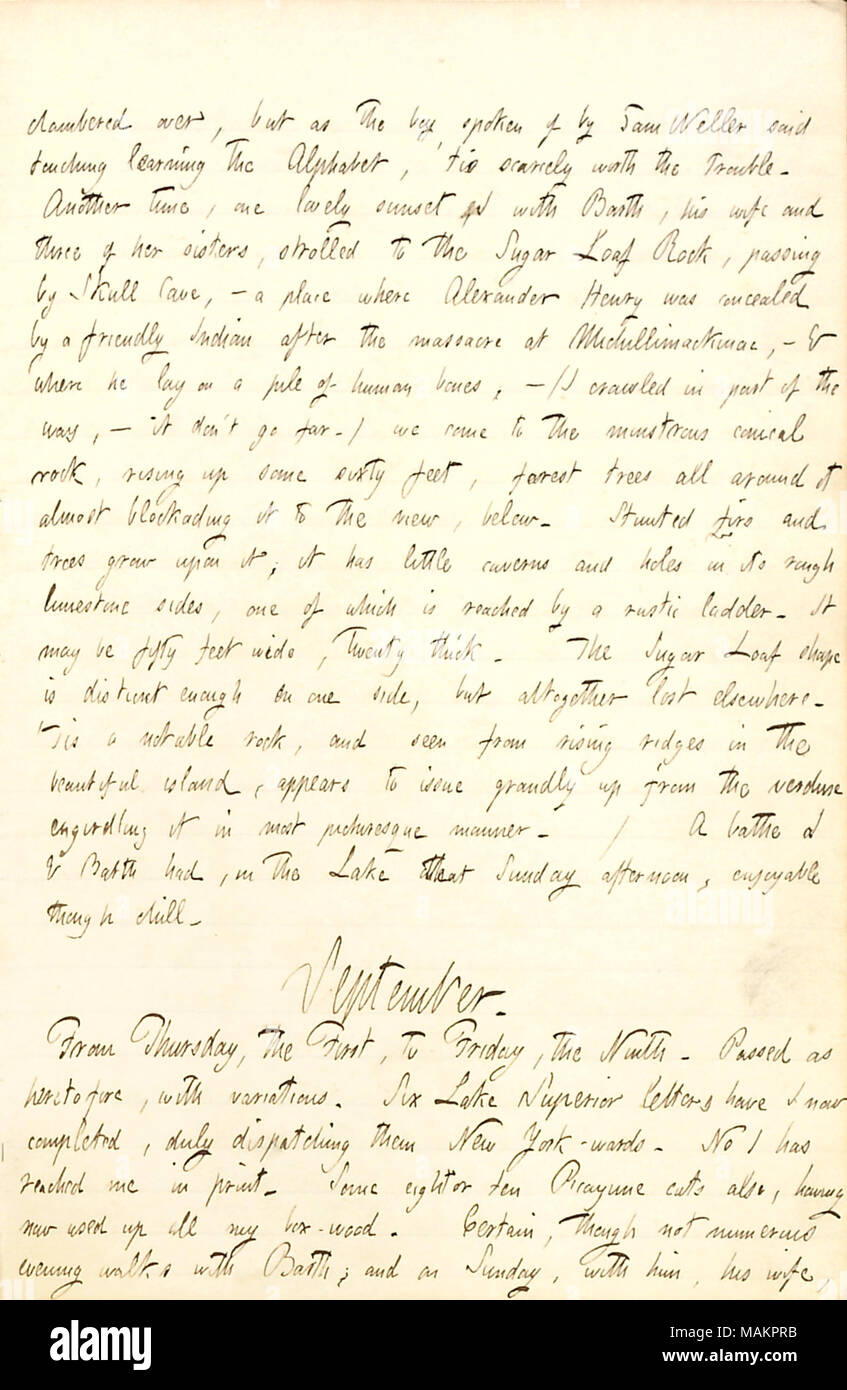 clambered over, but as the boy spoken of by Sam Weller said
touching learning the Alphabet, 'tis scarcely worth the trouble.
Another time, one lovely sunset I with Barth, his wife and
three of her sisters, strolled to the Sugar Loaf Rock, passing
by Skull Cave, — a place where Alexander Henry was concealed
by a friendly Indian after the massacre at Michillimackinac, — &
where he lay on a pile of human bones, — (I crawled in part of the
way, — it don't go far.) we come to the monstrous conical
rock, rising up some sixty feet, forest trees all around it
almost blockading it to the view, below. Stunted firs and
trees grow upon it; it has little caverns and holes in its rough
limestone sides, one of which is reached by a rustic ladder. It
may be fifty feet wide, twenty thick. The Sugar Loaf shape
is distinct enough on one side, but altogether lost elsewhere.
'Tis a notable rock, and seen from rising ridges in the
beautiful island, appears to issue grandly up from the verdure
engirdling it in most picturesque manner. / A bathe I
& Barth had, in the Lake that Sunday afternoon, enjoyable
though chill.
September.
From Thursday, the First, to Friday, the Ninth. Passed as
heretofore, with variations. Six Lake Superior letters have I now
completed, duly dispatching them New York-wards. No 1 has
reached me in print. Some eight or ten Picayune cuts also, having
now used up all my box-wood. Certain, though not numerous
evening walks with Barth; and on Sunday, with him, his wife,
alamy
Image ID: MAKPRB
www.alamy.com